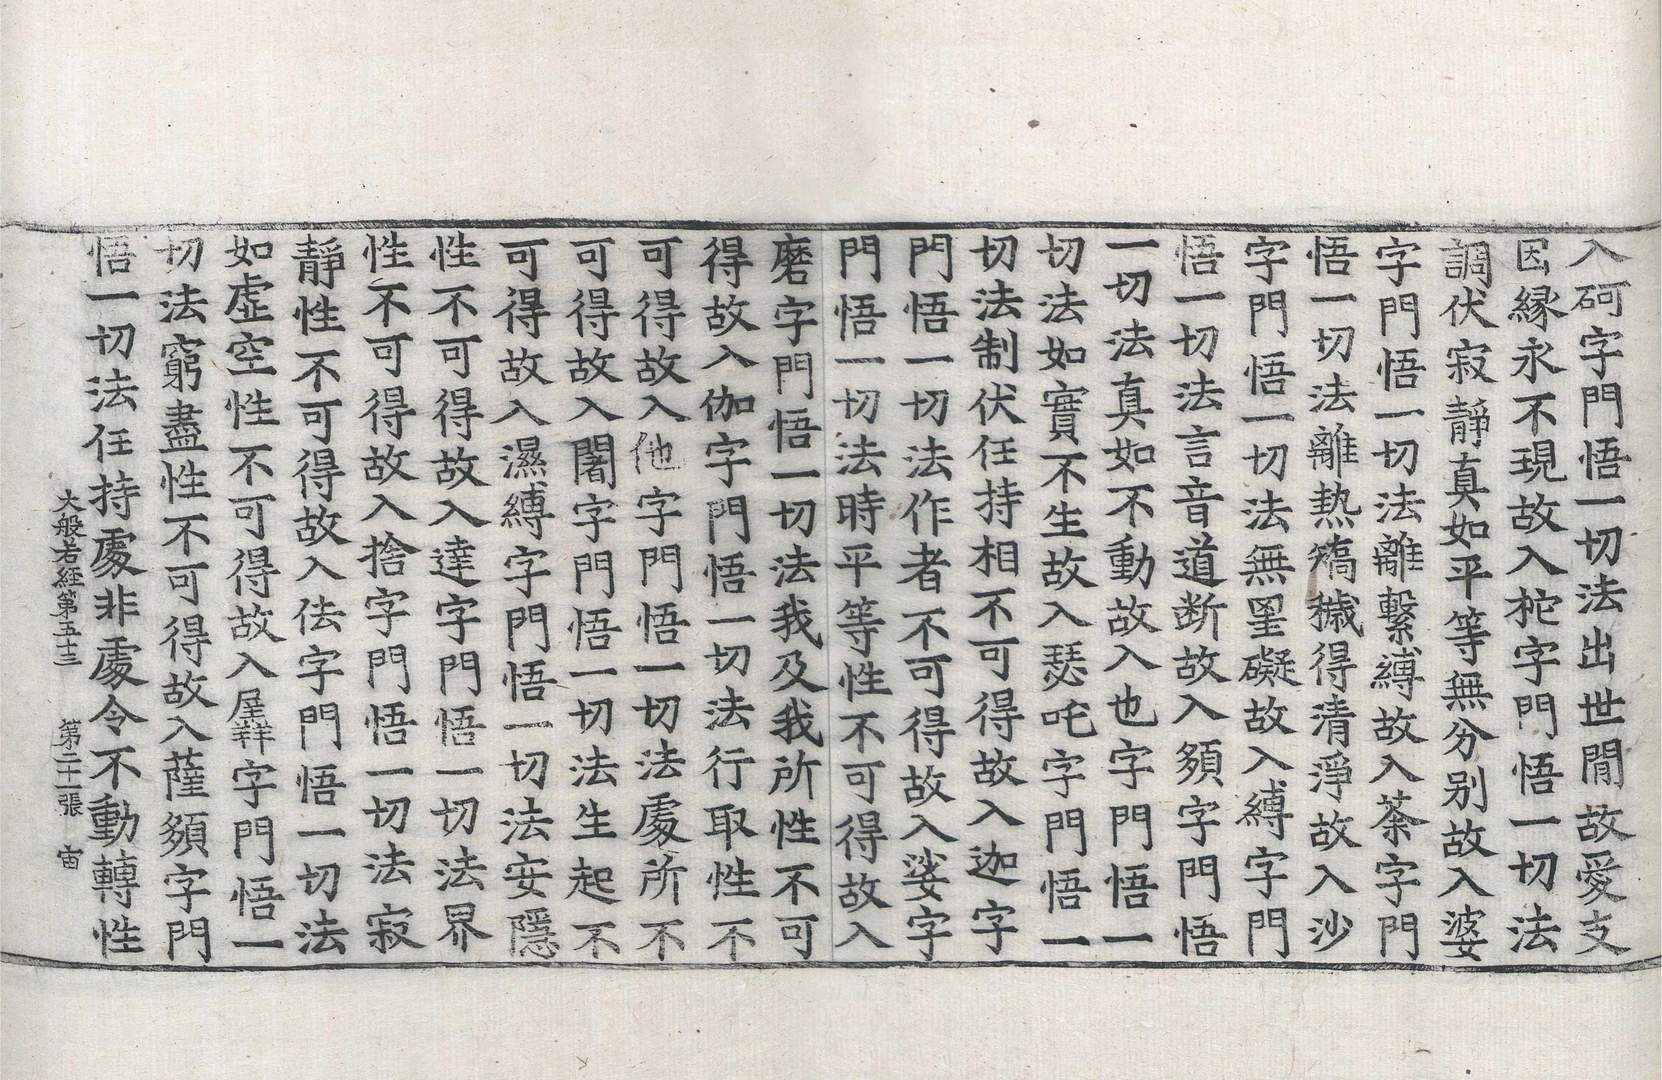 入砢字門悟一切法出世閒故愛支
因縁永不現故入柁字門悟一切法
調伏寂靜真如平等無分别故入婆
字門悟一切法離繫縛故入荼字門
悟一切法離熱矯穢得清淨故入沙
字門悟一切法無罣礙故入縛字門
悟一切法言音道断故入頞字門悟
一切法真如不動故入也字門悟一
切法如實不生故入瑟吒字門悟一
切法制伏任持相不可得故入迦字
門悟一切法作者不可得故入娑字
門悟一切法時平等性不可得故入
磨字門悟一切法我及我所性不可
得故入伽字門悟一切法行取性不
可得故入他字門悟一切法處所不
可得故入闍字門悟一切法生起不
可得故入濕縛字門悟一切法安隱
性不可得故入達字門悟一切法界
性不可得故入捨字門悟一切法寂
靜性不可得故入佉字門悟一切法
如虛空性不可得故入羼字門悟一
切法窮盡性不可得故入薩頞字門
悟一切法任持處非處令不動轉性
大般若經第五十三 第二十一張 宙